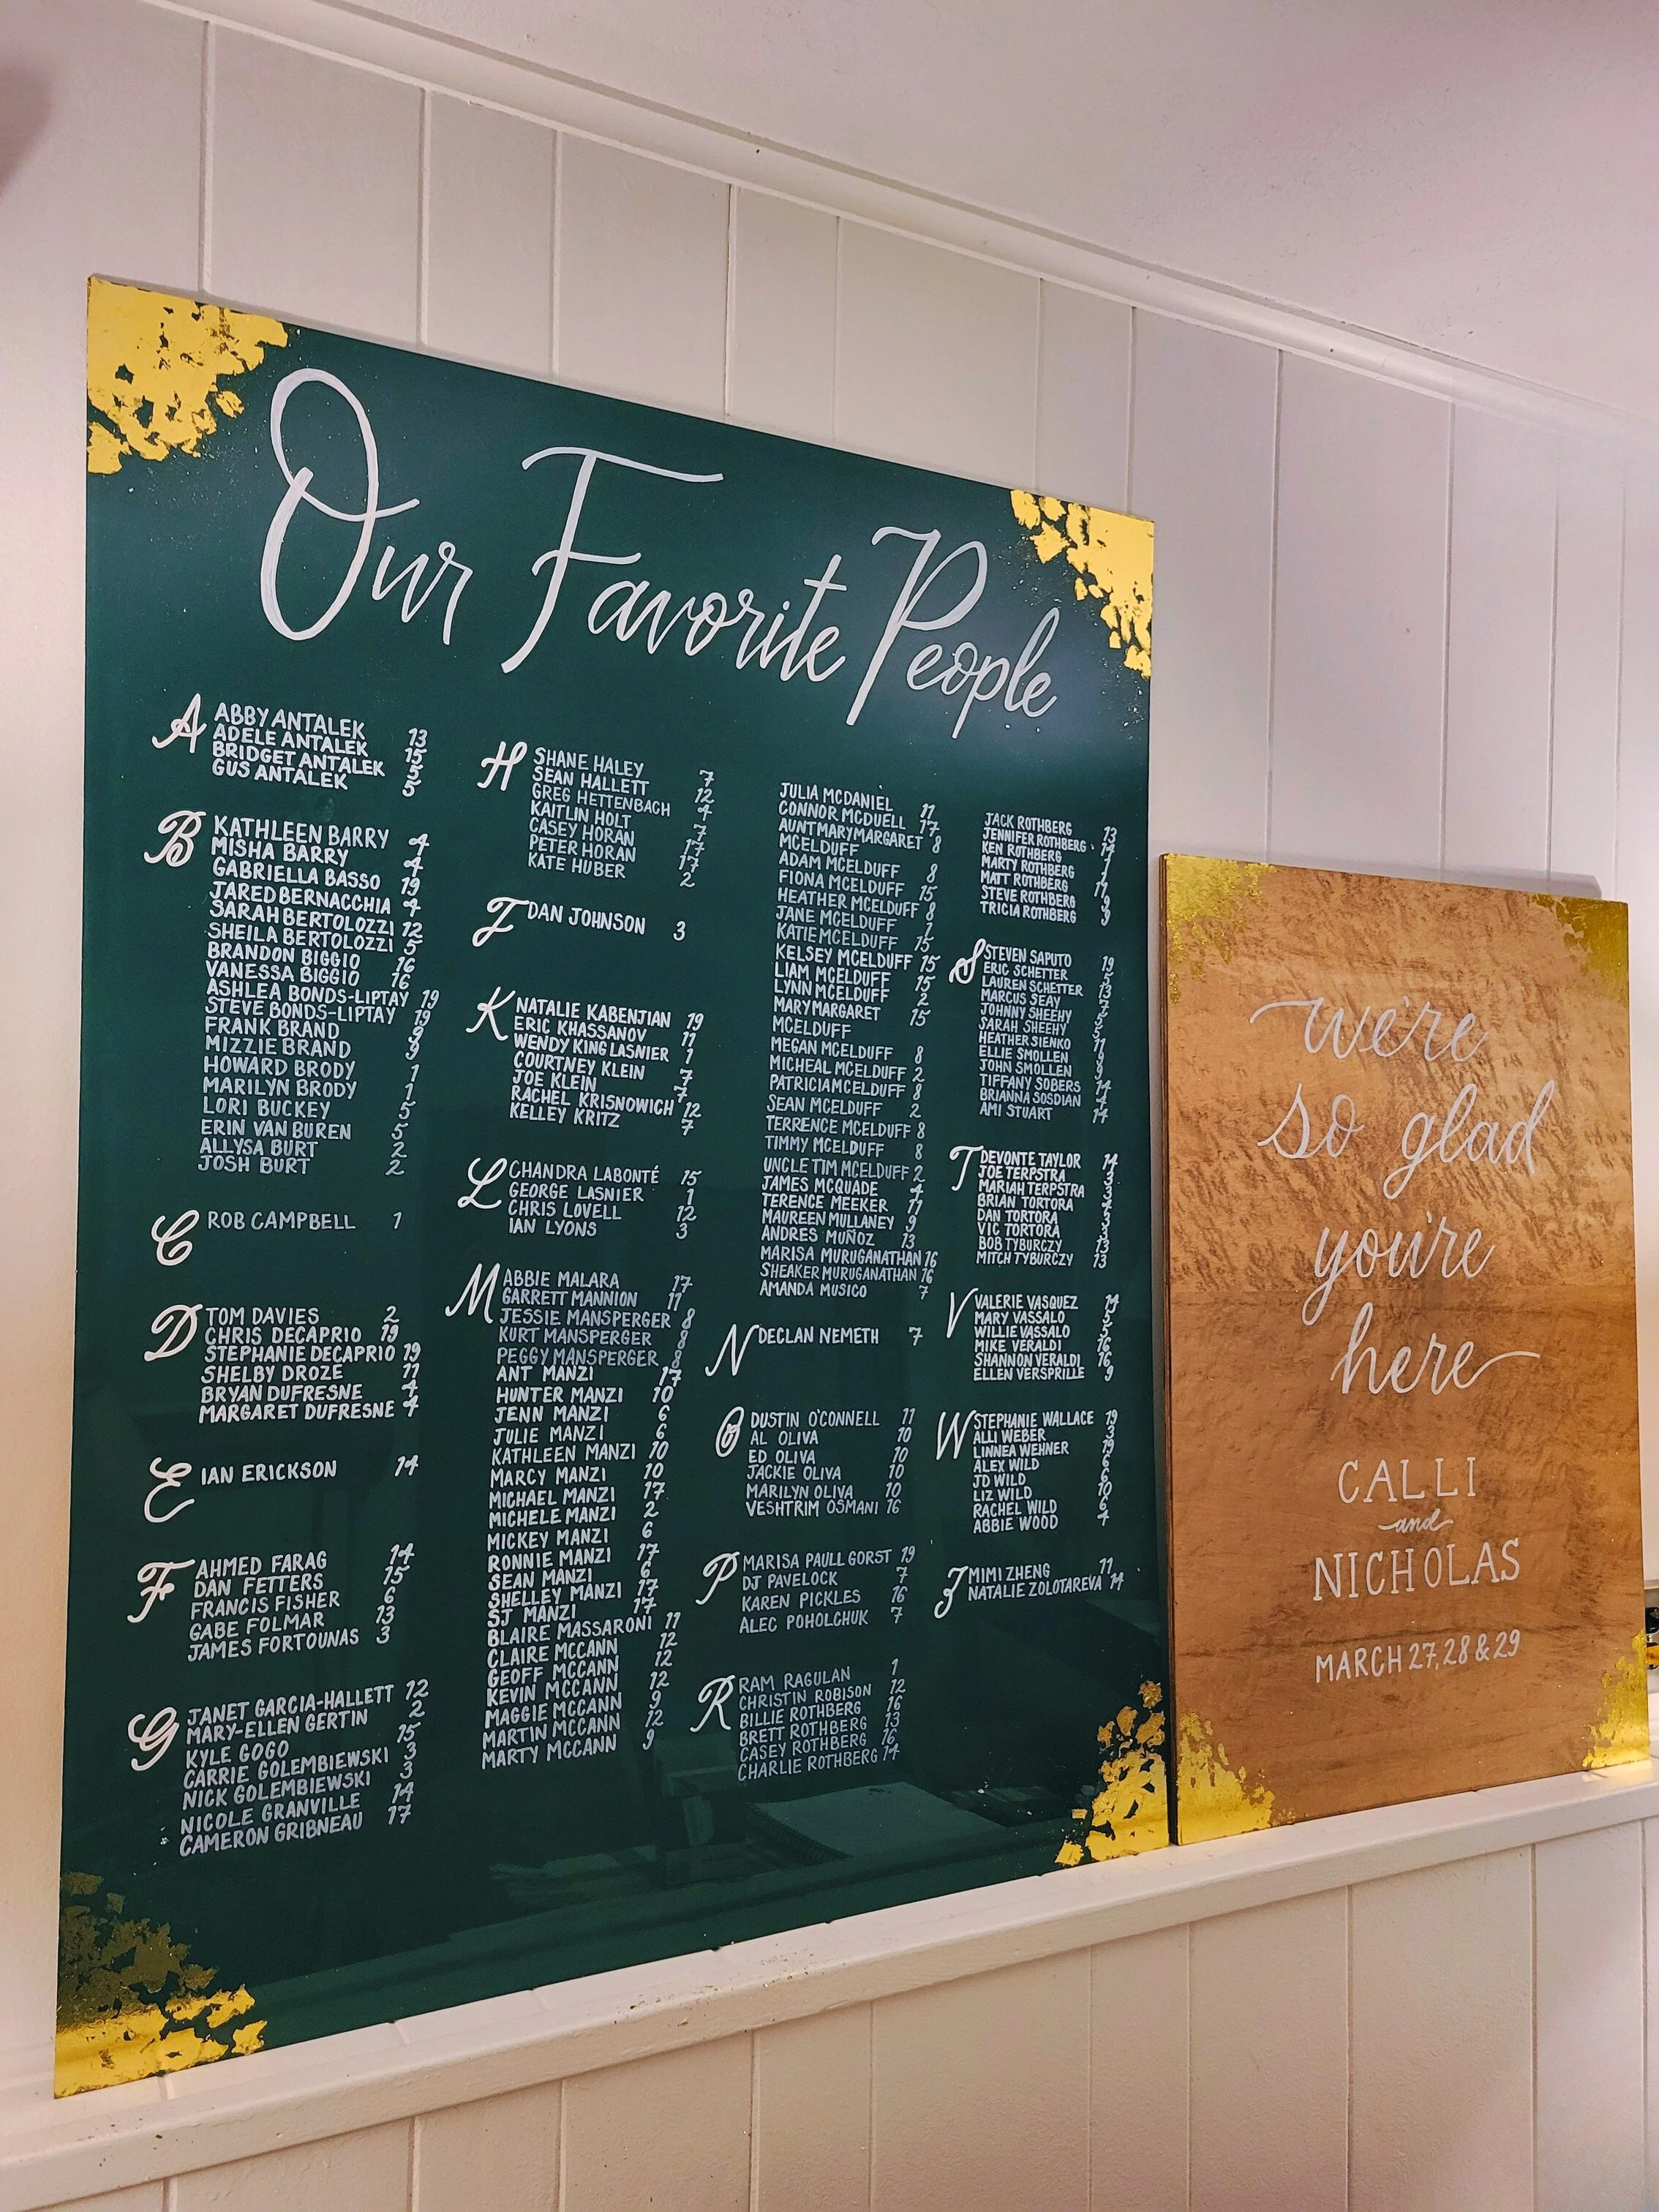 Our Favorite People
A
ABBY ANTALEK 13
ADELE ANTALEK 15
BRIDGET ANTALEK 5
GUS ANTALEK 5
B
KATHLEEN BARRY 4
MISHA BARRY 4
GABRIELLA BASSO 19
JARED BERNACCHIA 4
SARAH BERTOLOZZI 12
SHEILA BERTOLOZZI 5
BRANDON BIGGIO 16
VANESSA BIGGIO 16
ASHLEA BONDS-LIPTAY 19
STEVE BONDS-LIPTAY 19
FRANK BRAND 9
MIZZIE BRAND 9
HOWARD BRODY 1
MARILYN BRODY 1
LORI BUCKEY 5
ERIN VAN BUREN 5
ALLYSA BURT 2
JOSH BURT 2
C
ROB CAMPBELL 1
D
TOM DAVIES 2
CHRIS DECAPRIO 19
STEPHANIE DECAPRIO 19
SHELBY DROZE 11
BRYAN DUFRESNE 4
MARGARET DUFRESNE 4
E
IAN ERICKSON 14
F
AHMED FARAG 14
DAN FETTERS 15
FRANCIS FISHER 6
GABE FOLMAR 13
JAMES FORTOUNAS 3
G
JANET GARCIA-HALLETT 12
MARY-ELLEN GERTIN 2
KYLE GOGO 15
CARRIE GOLEMBIEWSKI 3
NICK GOLEMBIEWSKI 3
NICOLE GRANVILLE 14
CAMERON GRIBNEAU 17
H
SHANE HALEY 7
SEAN HALLETT 12
GREG HETTENBACH 4
KAITLIN HOLT 7
CASEY HORAN 17
PETER HORAN 17
KATE HUBER 2
J
DAN JOHNSON 3
K
NATALIE KABENJIAN 19
ERIC KHASSANOV 11
WENDY KING LASNIER 1
COURTNEY KLEIN 7
JOE KLEIN 7
RACHEL KRISNOWICH 12
KELLEY KRITZ 7
L
CHANDRA LABONTÉ 15
GEORGE LASNIER 1
CHRIS LOVELL 12
IAN LYONS 3
M
ABBIE MALARA 17
GARRETT MANNION 11
JESSIE MANSPERGER 8
KURT MANSPERGER 8
PEGGY MANSPERGER 8
ANT MANZI 17
HUNTER MANZI 10
JENN MANZI 6
JULIE MANZI 6
KATHLEEN MANZI 10
MARCY MANZI 10
MICHAEL MANZI 17
MICHELE MANZI 2
MICKEY MANZI 6
RONNIE MANZI 17
SEAN MANZI 6
SHELLEY MANZI 17
SJ MANZI 17
BLAIRE MASSARONI 11
CLAIRE MCCANN 12
GEOFF MCCANN 12
KEVIN MCCANN 12
MAGGIE MCCANN 9
MARTIN MCCANN 12
MARTY MCCANN 9
JULIA MCDANIEL 11
CONNOR MCDUELL 17
AUNT MARY MARGARET 8
MCELDUFF
ADAM MCELDUFF 8
FIONA MCELDUFF 15
HEATHER MCELDUFF 8
JANE MCELDUFF 1
KATIE MCELDUFF 15
KELSEY MCELDUFF 15
LIAM MCELDUFF 15
LYNN MCELDUFF 2
MARY MARGARET 15
MCELDUFF
MEGAN MCELDUFF 8
MICHEAL MCELDUFF 2
PATRICIA MCELDUFF 8
SEAN MCELDUFF 2
TERRENCE MCELDUFF 8
TIMMY MCELDUFF 8
UNCLE TIM MCELDUFF 2
JAMES MCQUADE 4
TERENCE MEEKER 11
MAUREEN MULLANEY 9
ANDRES MUÑOZ 13
MARISA MURUGANATHAN 16
SHEAKER MURUGANATHAN 16
AMANDA MUSICO 7
N
DECLAN NEMETH 7
O
DUSTIN O'CONNELL 11
AL OLIVA 10
ED OLIVA 10
JACKIE OLIVA 10
MARILYN OLIVA 10
VESHTRIM OSMANI 16
P
MARISA PAULL GORST 19
DJ PAVELOCK 7
KAREN PICKLES 16
ALEC POHOLCHUK 7
R
RAM RAGULAN 1
CHRISTIN ROBISON 12
BILLIE ROTHBERG 16
BRETT ROTHBERG 13
CASEY ROTHBERG 16
CHARLIE ROTHBERG 14
JACK ROTHBERG 13
JENNIFER ROTHBERG 14
KEN ROTHBERG 1
MARTY ROTHBERG 1
MATT ROTHBERG 11
STEVE ROTHBERG 9
TRICIA ROTHBERG 9
S
STEVEN SAPUTO 19
ERIC SCHETTER 5
LAUREN SCHETTER 13
MARCUS SEAY
JOHNNY SHEEHY
SARAH SHEEHY
HEATHER SIENKO 11
ELLIE SMOLLEN
JOHN SMOLLEN 9
TIFFANY SOBERS 14
BRIANNA SOSDIAN 4
AMI STUART 14
T
DEVONTE TAYLOR 14
JOE TERPSTRA 3
MARIAH TERPSTRA 3
BRIAN TORTORA 3
DAN TORTORA 3
VIC TORTORA 3
BOB TYBURCZY 13
MITCH TYBURCZY 13
V
VALERIE VASQUEZ 14
MARY VASSALO 5
WILLIE VASSALO 5
MIKE VERALDI 16
SHANNON VERALDI 16
ELLEN VERSPRILLE 9
W
STEPHANIE WALLACE 19
ALLI WEBER 3
LINNEA WEHNER 19
ALEX WILD 6
JD WILD 6
LIZ WILD 10
RACHEL WILD 6
ABBIE WOOD 4
Z
MIMI ZHENG 11
NATALIE ZOLOTAREVA 14
we're
so glad
you're
here
CALLI
and
NICHOLAS
MARCH 27, 28 & 29